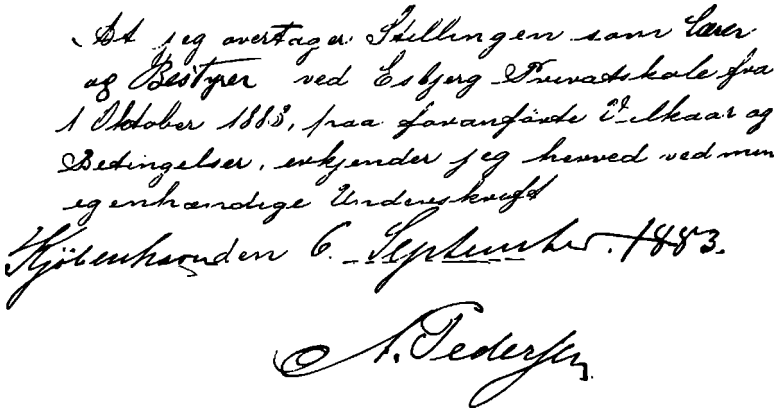 At jeg overtager Stillingen som Lærer
og Bestyrer ved Esbjerg Privatskole fra
1 Oktober 1883, paa foranførte Vilkaar og
Betingelser, erkjender jeg herved ved min
egenhændige Underskrift
Kjøbenhavn den 6. September 1883.
A. Pedersen